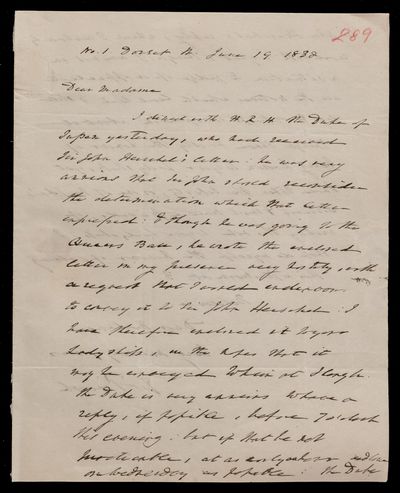 289
No. 1 Dorset St. June 19 1838
Dear Madame
I dined with H.R.H. the Duke of
Sussex yesterday, who had received
Sir John Herschel's letter: he was very
anxious that Sir John should reconsider
the determination which that letter
expressed: & though he was going to the
Queens Ball, he wrote the enclosed
letter in my presence very hastily, with
a request that I would endeavour
to convey it to Sir John Herschel: I
have therefore enclosed it to your
Ladyship, in the hopes that it
may be conveyed to him at Slough.
The Duke is very anxious to have a
reply, if possible, before 7 o'clock
this evening: but if that be not
practicable, at as early an hour
on Wednesday as possible: the Duke